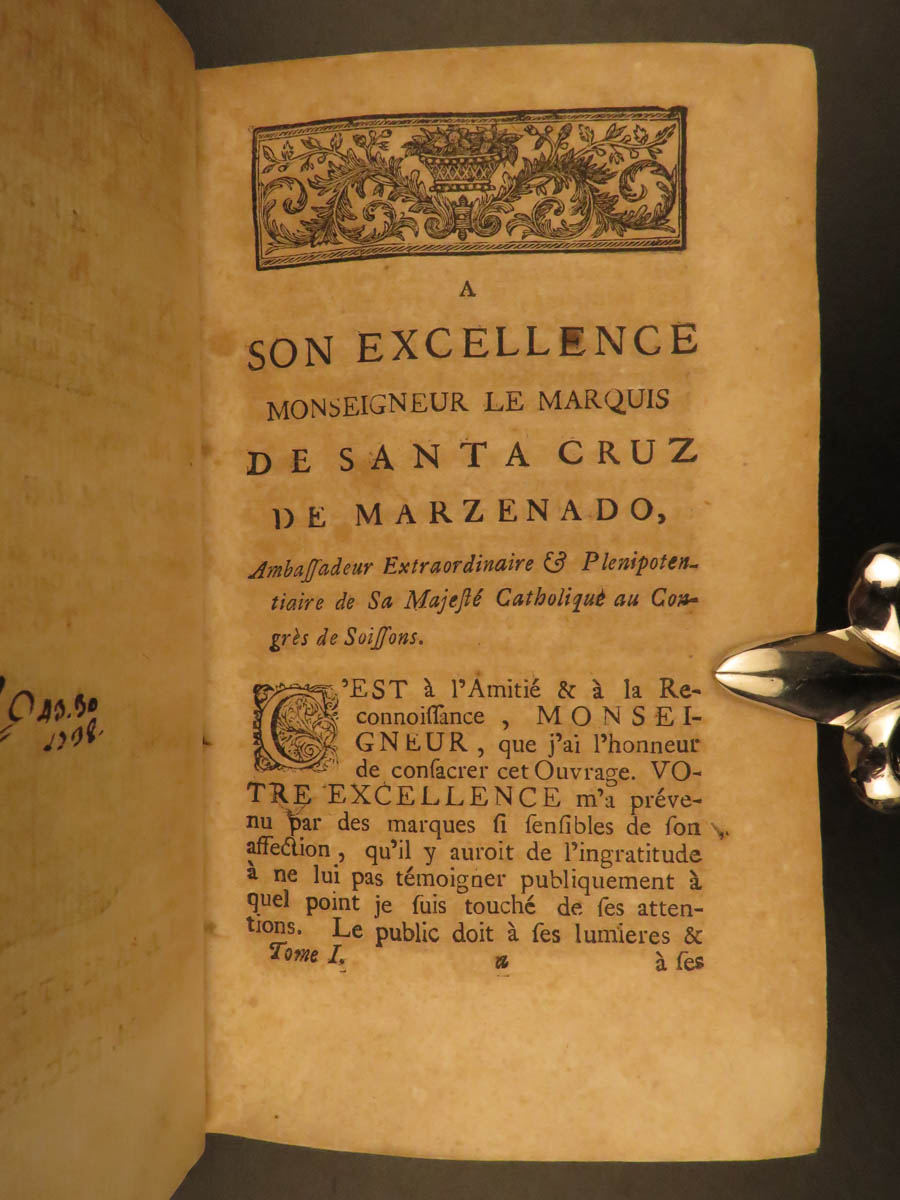 A
SON EXCELLENCE
MONSEIGNEUR LE MARQUIS
DE SANTA CRUZ
DE MARZENADO,
Ambaſſadeur Extraordinaire & Plenipoten-
tiaire de Sa Majeſté Catholique au Con-
grès de Soiſſons.
C'EST à l'Amitié & à la Re-
connoiſſance, MONSEI-
GNEUR, que j'ai l'honneur
de conſacrer cet Ouvrage. VO-
TRE EXCELLENCE m'a préve-
nu par des marques ſi ſenſibles de ſon
affection, qu'il y auroit de l'ingratitude
à ne lui pas témoigner publiquement à
quel point je ſuis touché de ſes atten-
tions. Le public doit à ſes lumieres &
Tome I. a à ſes